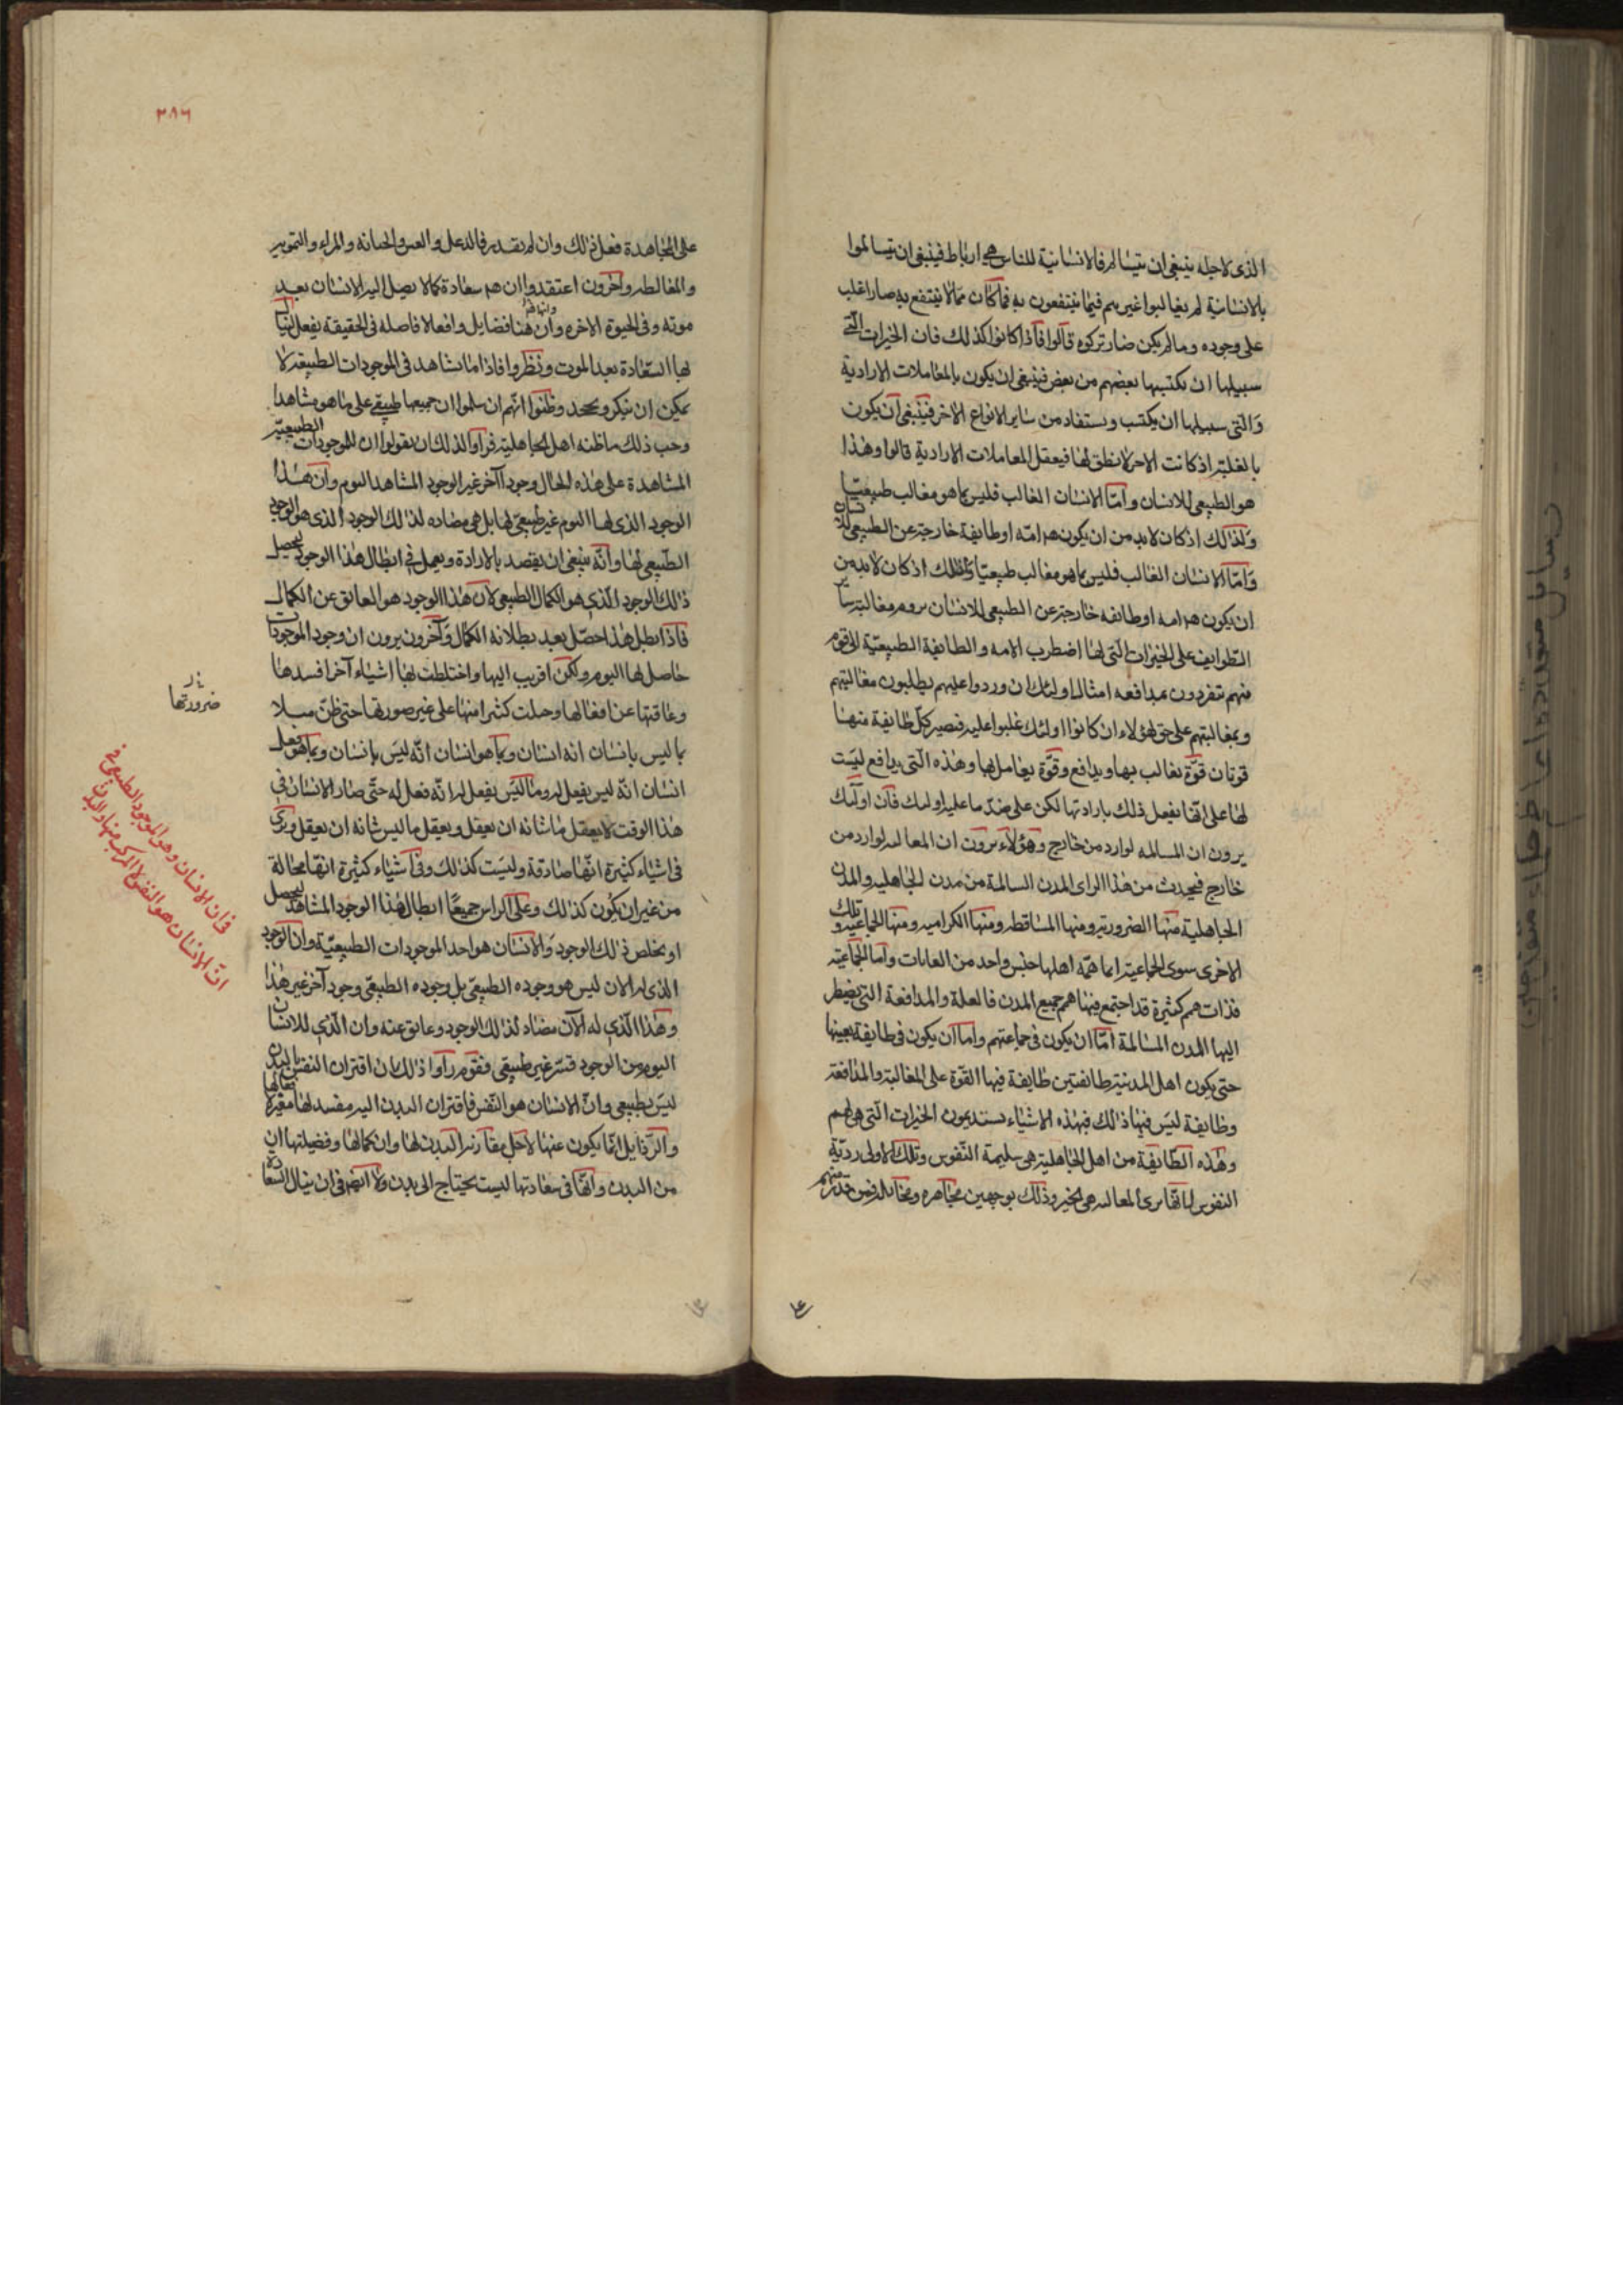 الذى لاجله ينبغى ان يتسالم فالانسانية للناس هى ارتباط فينبغى ان يتسالموا
بالانسانية ثم يغالبوا غيرهم فيما ينتفعون به فما كان مما لا ينتفع به صار اغلب
على وجوده وما لم يكن ضار تركوه قالوا فاذا كانوا كذلك فان الخيرات التى
سبيلها ان يكتسبها بعضهم من بعض فينبغى ان يكون بالمعاملات الارادية
والتى سبيلها ان يكتسب ويستفاد من ساير الانواع الاخر فينبغى ان يكون
بالغلبة اذ كانت الاخر لا نطق لها فيعقل المعاملات الارادية قالوا وهذا
هو الطبيعى للانسان واما الانسان الغالب فليس بما هو مغالب طبيعيا
ولذلك اذ كان لابد من ان يكون هم امه او طايفة خارجة عن الطبيعى للانسان
واما الانسان الغالب فليس بما هو مغالب طبيعيا ولذلك اذ كان لابد من
ان يكون هم امه او طايفه خارجة عن الطبيعى للانسان يروم مغالبة ساير
الطوايف على الخيرات التى لها اضطرب الامه والطايفة الطبيعية الى قوم
منهم ينفردون بمدافعه امثال اولئك ان وردوا عليهم يطلبون مغالبتهم
وبمغالبتهم على حق هؤلاء ان كانوا اولئك غلبوا عليه فيصير كل طايفة منها
قوتان قوة يغالب بها ويدافع وقوة يعامل بها وهذه التى يدافع ليست
لها على انها يفعل ذلك بارادتها لكن على ضد ما عليه اولئك فان اولئك
يرون ان المسالمه لوارد من خارج وهؤلاء يرون ان المغالبه لوارد من
خارج فيحدث من هذا الراى المدن السالمة من مدن الجاهليه والمدن
الجاهلية منها الضرورية ومنها الساقطه ومنها الكراميه ومنها الجماعيه وتلك
الاخرى سوى الجماعية انما همه اهلها جنس واحد من الغايات واما الجماعية
فذات همم كثيرة قد اجتمع فيها همم جميع المدن فالغلبة والمدافعة التى يضطر
اليها المدن المسالمة اما ان يكون فى جماعتهم واما ان يكون فى طايفة بعينها
حتى يكون اهل المدينة طائفتين طايفة فيها القوة على المغالبة والمدافعة
وطايفة ليس فيها ذلك فبهذه الاشياء يستديمون الخيرات التى هى لهم
وهذه الطايفة من اهل الجاهلية هى سليمة النفوس وتلك الاولى ردية
النفوس لانها ترى المغالبه هى الخير وذلك بوجهين مجاهره ومخاتله فمن قدر منهم
٣٨٦
على المجاهدة فعل ذلك وان لم يقدر فبالدغل والغش والمراء والتمويه
والمغالطه واخرون اعتقدوا ان هم سعادة كمالا يصل اليه الانسان بعد
موته وفى الحيوة الاخره وان هنا فضايل وافعالا فاضله فى الحقيقة يفعل لينال
بها السعادة بعد الموت ونظروا فاذا ما يشاهد فى الموجودات الطبيعة لا
يمكن ان ينكر ويجحد وظنوا انهم ان سلموا ان جميعها طبيعى على ما هو مشاهد
وجب ذلك ما ظنه اهل الجاهلية فراوا لذلك ان يقولوا ان للموجودات الطبيعية
المشاهدة على هذه الحال وجودا آخر غير الوجود المشاهد اليوم وان هذا
الوجود الذى لها اليوم غير طبيعى لها بل هى مضاده لذلك الوجود الذى هو الوجود
الطبيعى لها وانه ينبغى ان يقصد بالارادة ويعمل فى ابطال هذا الوجود ليحصل
ذلك الوجود الذى هو الكمال الطبيعى لان هذا الوجود هو العائق عن الكمال
فاذا بطل هذا حصل بعد بطلانه الكمال وآخرون يرون ان وجود الموجودات
حاصل لها اليوم ولكن اقتربت اليها واختلطت بها اشياء آخر افسدها
وعاقتها عن افعالها وجعلت كثيرا منها على غير صورتها حتى ظن مثلا
بما ليس بانسان انه انسان وبما هو انسان انه ليس بانسان وبما هو فعل
انسان انه ليس بفعل له وما ليس بفعل له انه فعل له حتى صار الانسان فى
هذا الوقت لا يعقل ما شانه ان يعقل ويعقل ما ليس شانه ان يعقل ويرى
فى اشياء كثيرة انها صادقة وليست كذلك وفى اشياء كثيرة انها محالة
من غير ان يكون كذلك وعلى الراس جميعا ابطال هذا الوجود المشاهد ليحصل
او يخلص ذلك الوجود والانسان هو احد الموجودات الطبيعية وان الوجود
الذى له الان ليس هو وجوده الطبيعى بل وجوده الطبيعى وجود آخر غير هذا
وهذا الذى له الآن مضاد لذلك الوجود وعائق عنه وان الذى للانسان
اليوم من الوجود قسر غير طبيعى فقوم راوا ذلك بان اقتران النفس بالبدن
ليس بطبيعى وان الانسان هو النفس فاقتران البدن اليه مفسد لها مغير لافعالها
والرذايل انما يكون عنها لاجل مقارنة البدن لها وان كمالها وفضيلتها ان
من البدن وانها فى سعادتها ليست يحتاج الى بدن ولا ايضا فى ان ينال السعادة
ضرورتها
فان الانسان وهو الموجود الطبيعى
ان الانسان هو النفس لا المركب منها والبدن